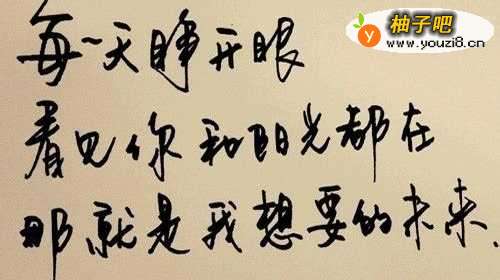 柚子吧
www.youzi8.cn
每一天睁开眼
看见你和阳光都在
那就是我想要的未来.